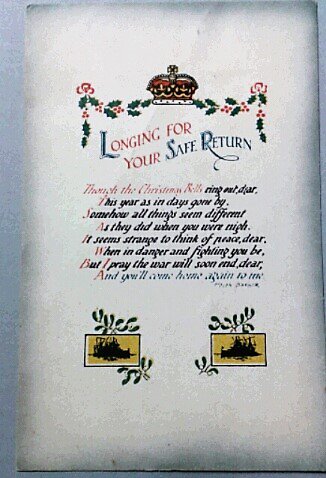 LONGING FOR
YOUR SAFE RETURN
Though the Christmas Bells ring out, dear,
This year as in days gone by.
Somehow all things seem different
As they did when you were nigh.
It seems strange to think of peace, dear,
When in danger and fighting you be,
But I pray the war will soon end, dear,
And you'll come home again to me